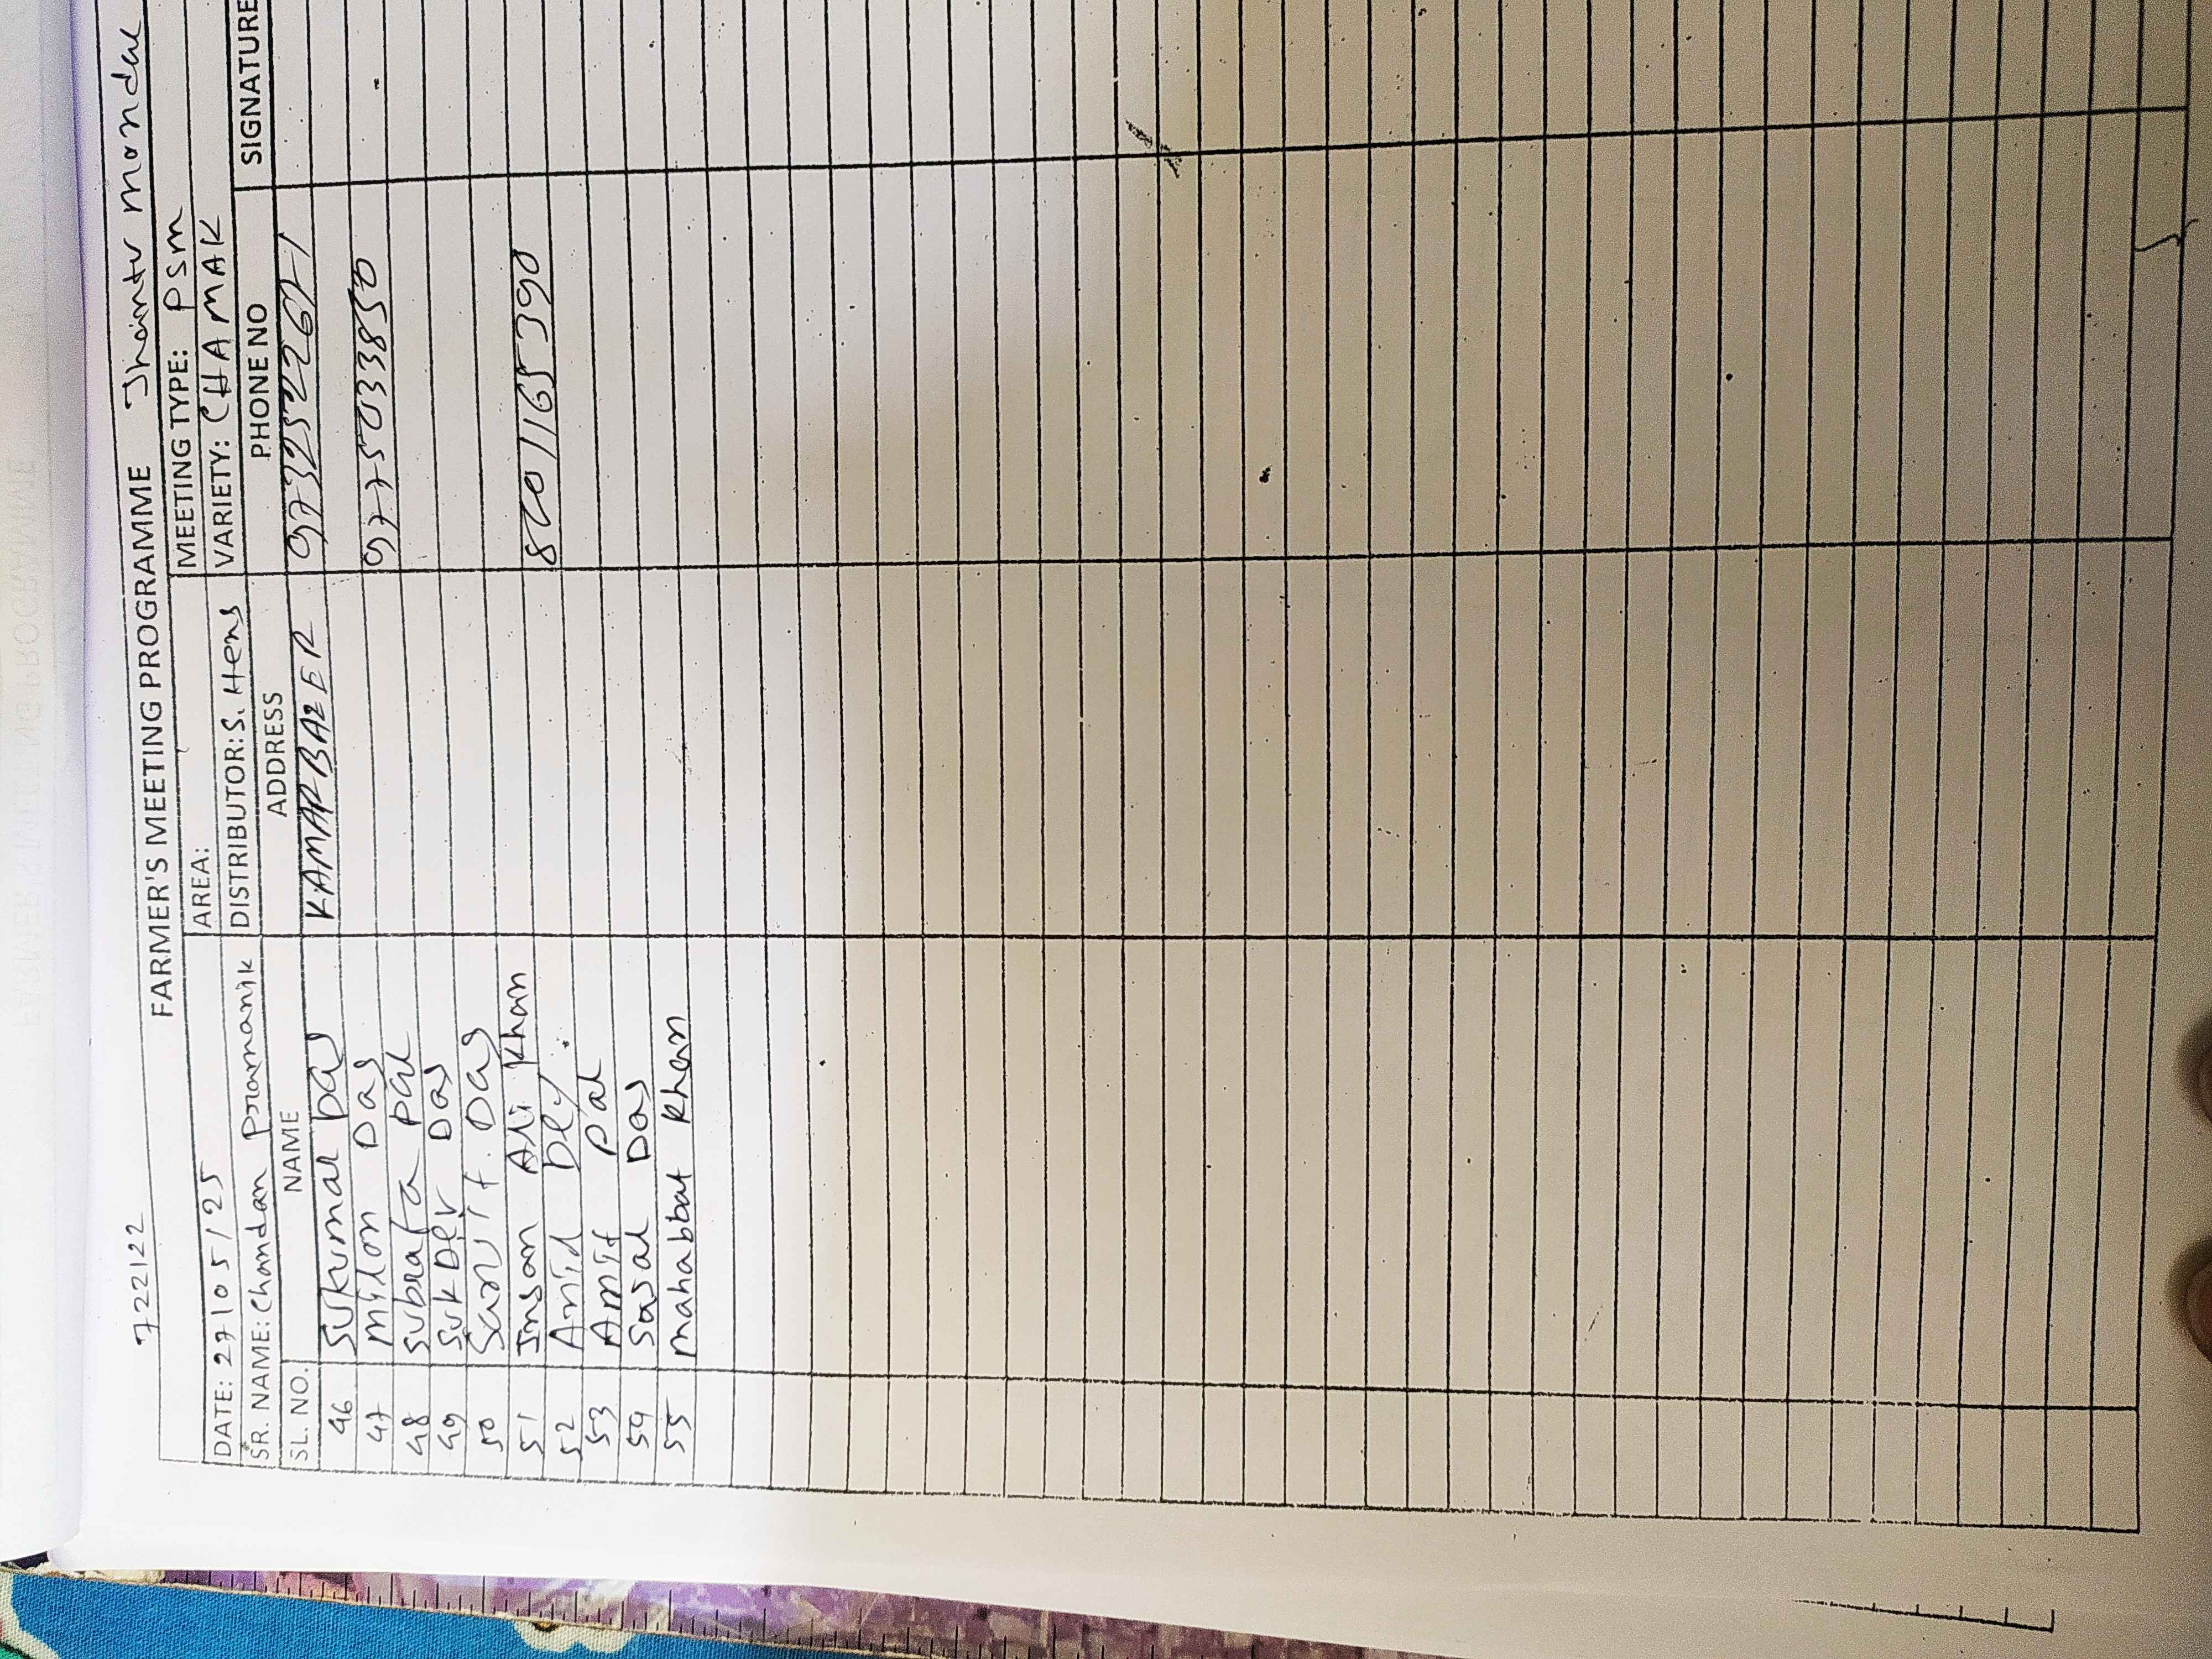 722122
FARMER'S MEETING PROGRAMME Jhantu mondal
AREA: MEETING TYPE: PSM
DATE: 27/05/25 DISTRIBUTOR: S. Hens VARIETY: CHAMAK
SR. NAME: Chandan Pramanik
SL. NO. NAME ADDRESS PHONE NO SIGNATURE
46 Sukumar Das KAMARBAZER
47 Milon Das 9775033850
48 Subrata Pal
49 SukDev Das
50 Das
51 Insan Ali Khan 8601165390
52 Anil Dey
53 Amit Pal
54 Das
55 Mahabbat Khan